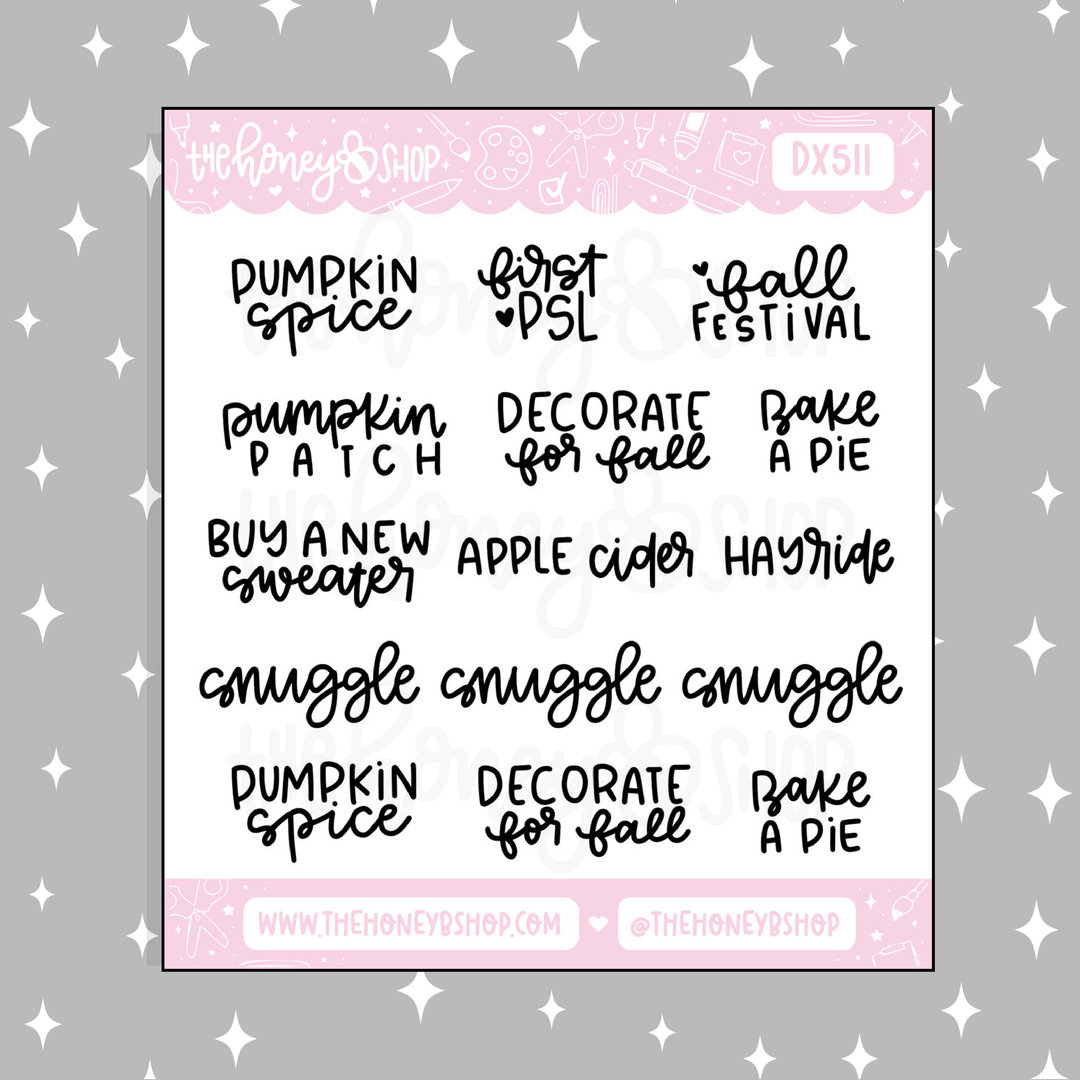 the honey B SHOP
DX511
PUMPKIN
spice
first
PSL
fall
FESTIVAL
pumpkin
PATCH
DECORATE
for fall
Bake
A PiE
BUY A NEW
sweater
APPLE cider
HAYride
snuggle snuggle snuggle
PUMPKIN
spice
DECORATE
for fall
Bake
A PiE
WWW.THEHONEYBSHOP.COM
@THEHONEYBSHOP